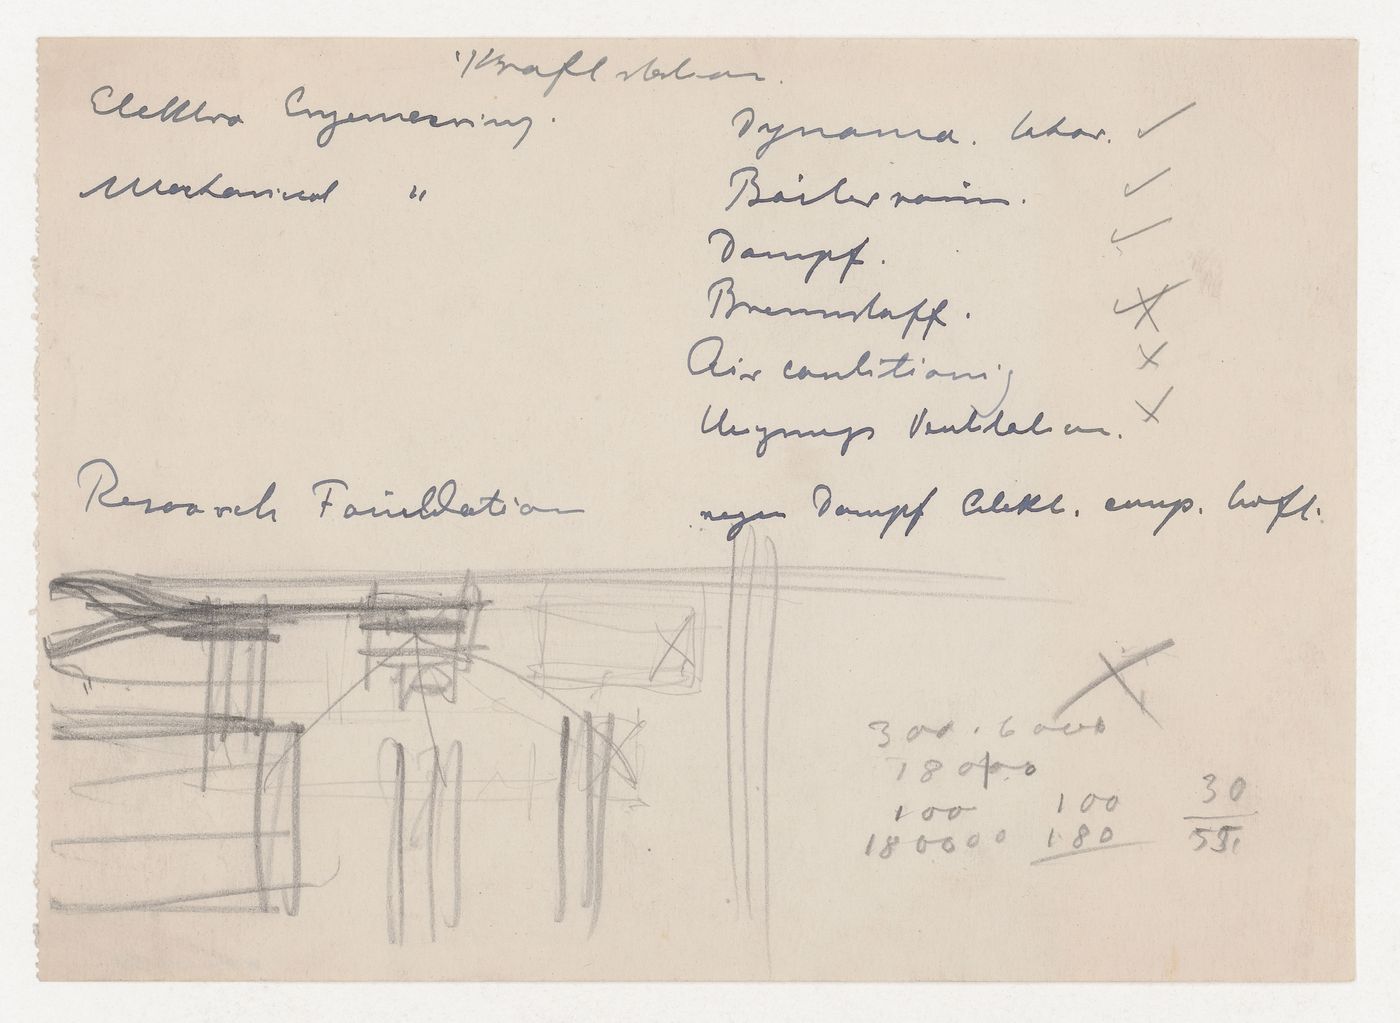 Kraftstation.
Elektro Engeneering.
Mechanical "
Dynamo. labor. ✓
Boiler room. ✓
Dampf. ✓
Brennstoff. X
Air conditionig X
Ventilation. X
Research Foundation
Dampf Elekt. comp. luft.
300.6000
18000
100
180000
100
180
30